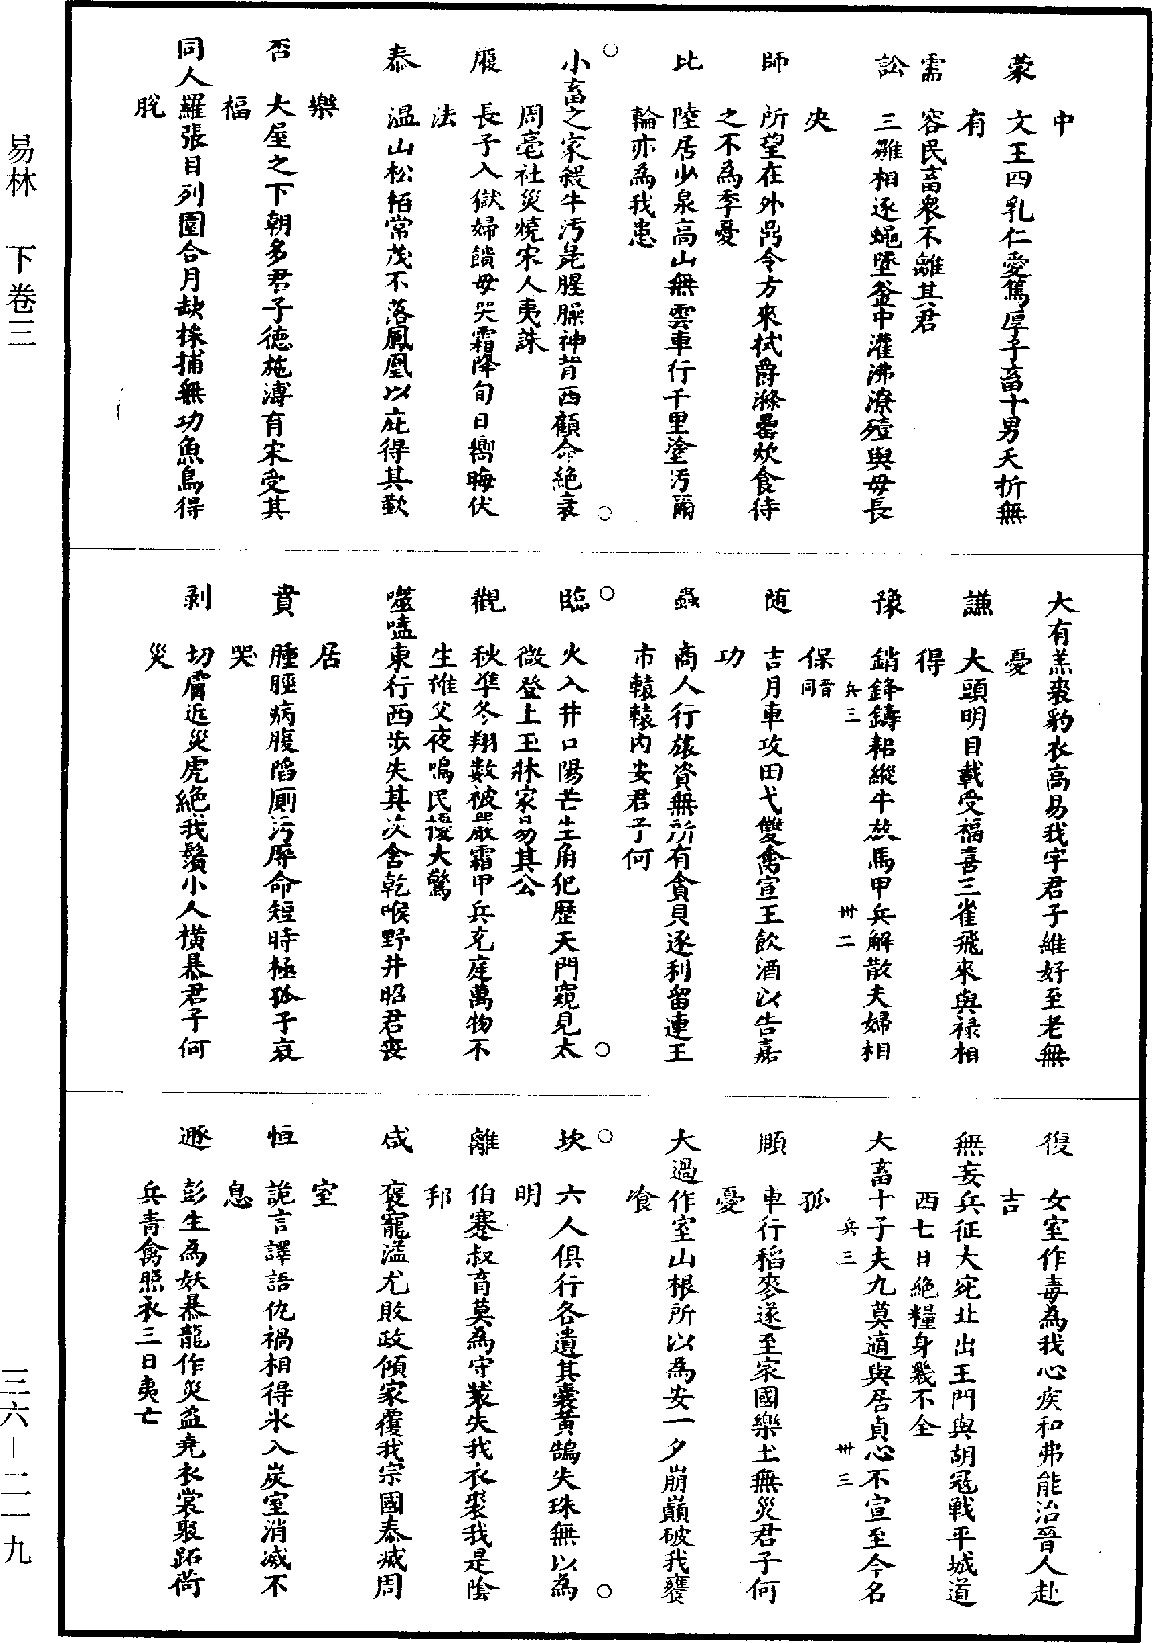 中
蒙　文王四乳仁愛篤厚子畜十男夭折無
有
需　容民畜衆不離其君
訟　三雞相逐蠅墜釡中灌沸潦殪與母長
央
師　所望在外鼎令方來拭爵滌罍炊食待
之不為季憂
比　陸居少泉高山無雲車行千里塗污爾
輪亦為我患
小畜之家鍭牛污㲋腥臊神背西顧命絶衰
周亳社災燒宋人夷誅
履　長子入獄婦饋母哭霜降旬日嚮晦伏
法
泰　温山松栢常茂不落鳳凰以庇得其歡
樂
否　大屋之下朝多君子徳施溥有宋受其
福
同人羅張目列圍合月缺採捕無功魚鳥得
脫
大有羔裘豹衣高易我宇君子維好至老無
憂
謙　大頭明目載受福喜三雀飛來與禄相
得
豫　銷鋒鑄耜縱牛放馬甲兵解散夫婦相
保
同音
兵三
卅二
随　吉月車攻田弋雙禽宣王飲酒以告嘉
功
蠱　商人行旅資無所有貪貝逐利留連王
市轅轅内安君子何
臨　火入井口陽芒生角犯歴天門窺見太
微登上玉牀家易其公
觀　秋隼冬翔數被嚴霜甲兵充庭萬物不
生雄父夜鳴民擾大驚
噬嗑東行西步失其次舍乾喉野井昭君喪
居
賁　腫脛病腹陷厠污辱命短時極孤子哀
哭
剥　切膚近災虎絶我鬚小人橫暴君子何
災
復　女室作毒為我心疾和弗能治晉人赴
吉
無妄兵征大宛北出王門與胡冦戰平城道
西七日絶糧身幾不全
大畜十子夫九莫適與居貞心不宣至今名
孤
兵三
卅三
頤　車行稻麥遂至家國樂土無災君子何
憂
大過作室山根所以為安一夕崩巔破我甕
飡
坎　六人俱行各遺其囊黃鵠失珠無以為
明
離　伯蹇叔盲莫為守裝失我衣裘我是陰
邦
咸　褒寵溢尤敗政傾家覆我宗國泰滅周
室
恒　詭言譯語仇禍相得氷入炭室消滅不
息
遯　彭生為妖暴龍作災盗堯衣裳聚跖荷
兵青禽照夜三日夷亡
易林　下卷三
三六—二一九